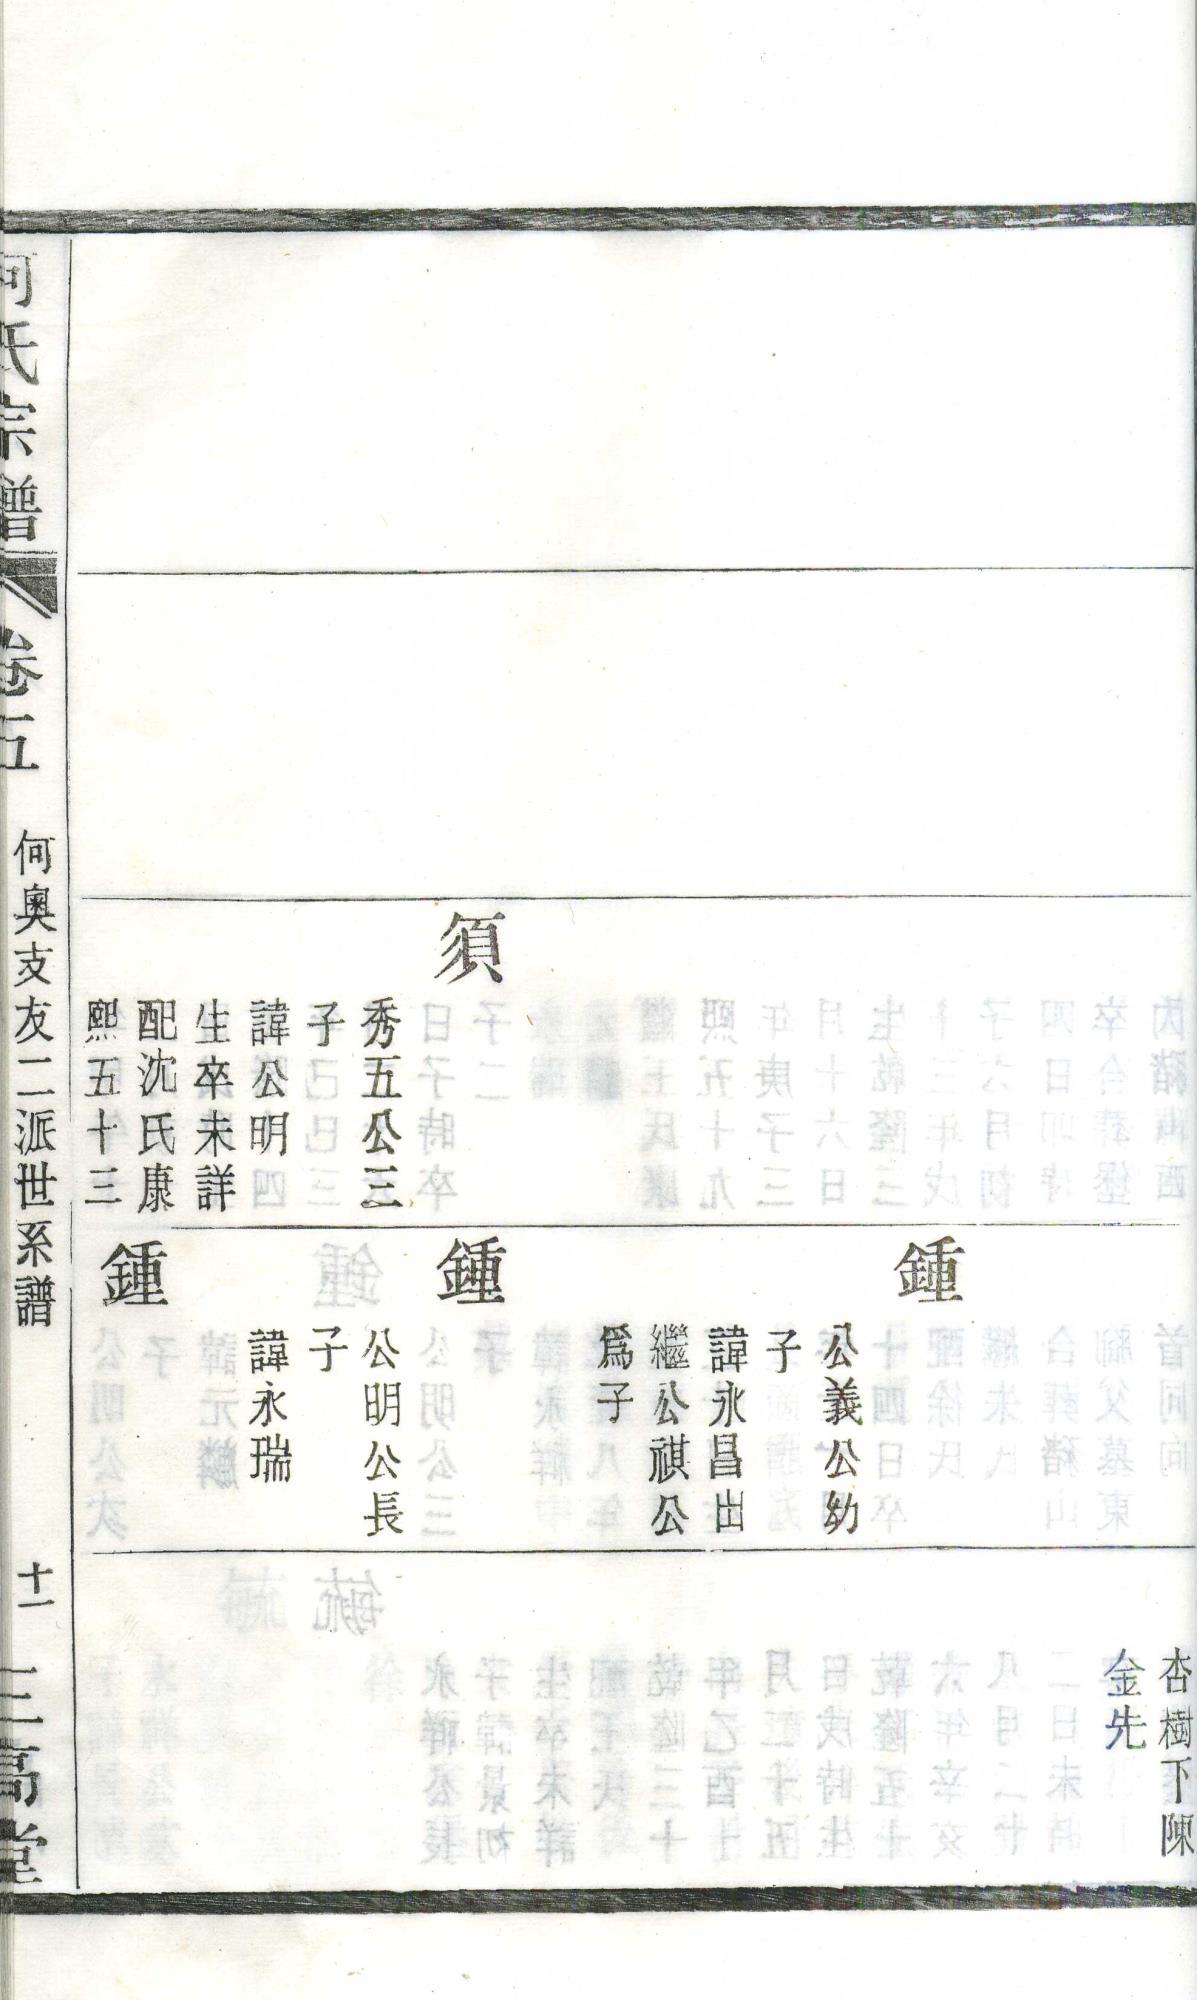 須
秀五公三
子
諱公明
生卒未詳
配沈氏康
熙五十三
鍾
公義公幼
子
諱永昌出
繼公祺公
爲子
鍾
公明公長
子
諱永瑞
鍾
杏樹下陳
金先
何氏宗譜
卷五
何奥支友二派世系譜
十一
三高堂